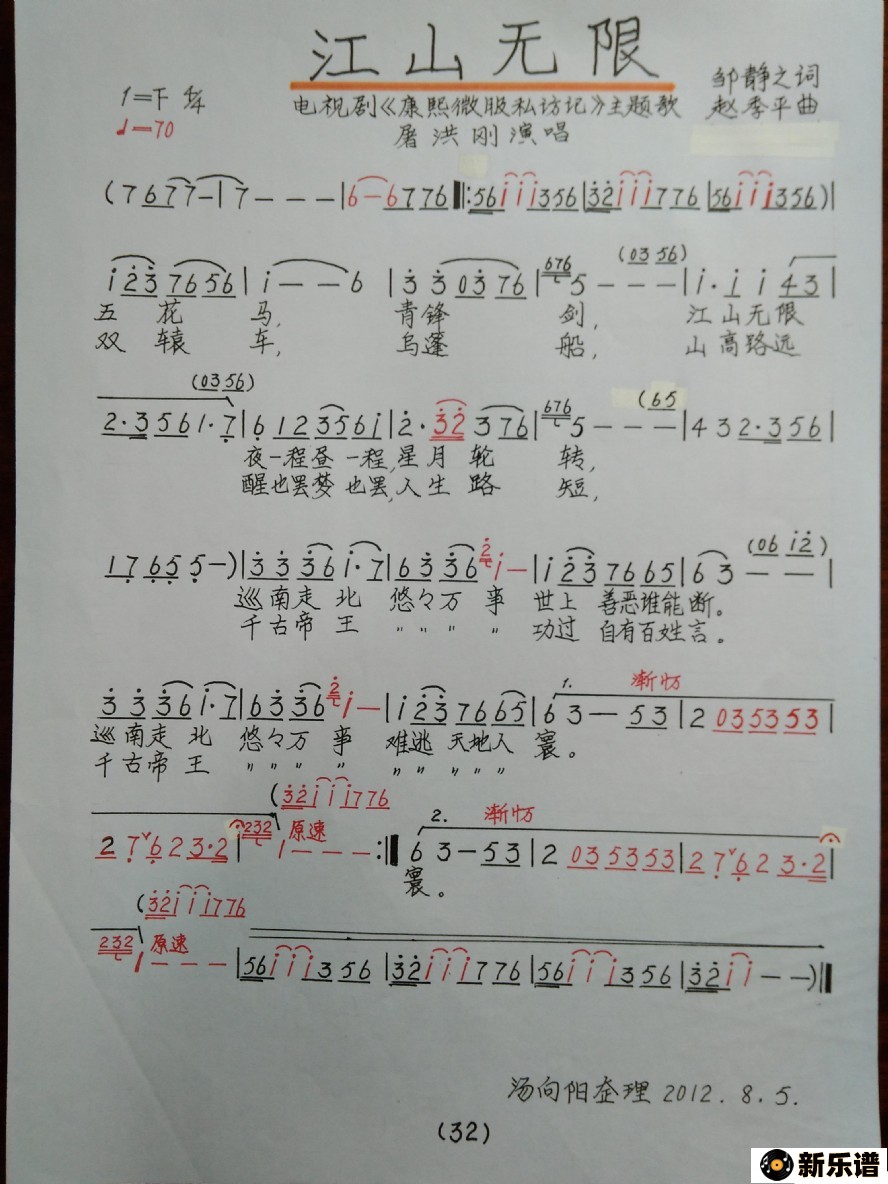 江山无限
1=F 4/4
♩=70
电视剧《康熙微服私访记》主题歌
屠洪刚演唱
邹静之词
赵季平曲
(7 6 7 7 – | 7 – – – | 6 – 6 7 7 6 ‖: 5 6 i i i 3 5 6 | 3 2 i i i 7 7 6 | 5 6 i i i 3 5 6 )|
(0 3 5 6)
i 2 3 7 6 5 6 | i – – 6 | 3 3 0 3 7 6 | 676 5 – – – | i · i i 4 3 |
五 花 马, 青锋 剑, 江山无限
双 辕 车, 乌篷 船, 山高路远
(0 3 5 6) (6 5
2 · 3 5 6 1 · 7 | 6 1 2 3 5 6 i | 2 · 3 2 3 7 6 | 676 5 – – – | 4 3 2 2 · 3 5 6 |
夜一程昼一程,星月轮 转,
醒也罢梦也罢,人生路 短,
(0 6 i 2)
1 7 6 5 5 –)| 3 3 3 6 i · 7 | 6 3 3 6 2 i – | i 2 3 7 6 6 5 | 6 3 – – |
巡南走北 悠々万事 世上善恶谁能断。
千古帝王 〃〃〃〃 功过自有百姓言。
1. 渐慢
3 3 3 6 i · 7 | 6 3 3 6 2 i – | i 2 3 7 6 6 5 | 6 3 – 5 3 | 2 0 3 5 3 5 3 |
巡南走北 悠々万事 难逃天地人寰。
千古帝王 〃〃〃〃 〃〃〃〃〃
(3 2 i i i 7 7 6
2 7 ∨ 6 2 3 · 2 | 232 1 – – – :‖ 6 3 – 5 3 | 2 0 3 5 3 5 3 | 2 7 ∨ 6 2 3 · 2 |
原速
2. 渐慢
寰。
(3 2 i i i 7 7 6
232 1 – – – | 5 6 i i i 3 5 6 | 3 2 i i i 7 7 6 | 5 6 i i i 3 5 6 | 3 2 i i – –)‖
原速
汤向阳整理 2012.8.5.
(32)
新乐谱